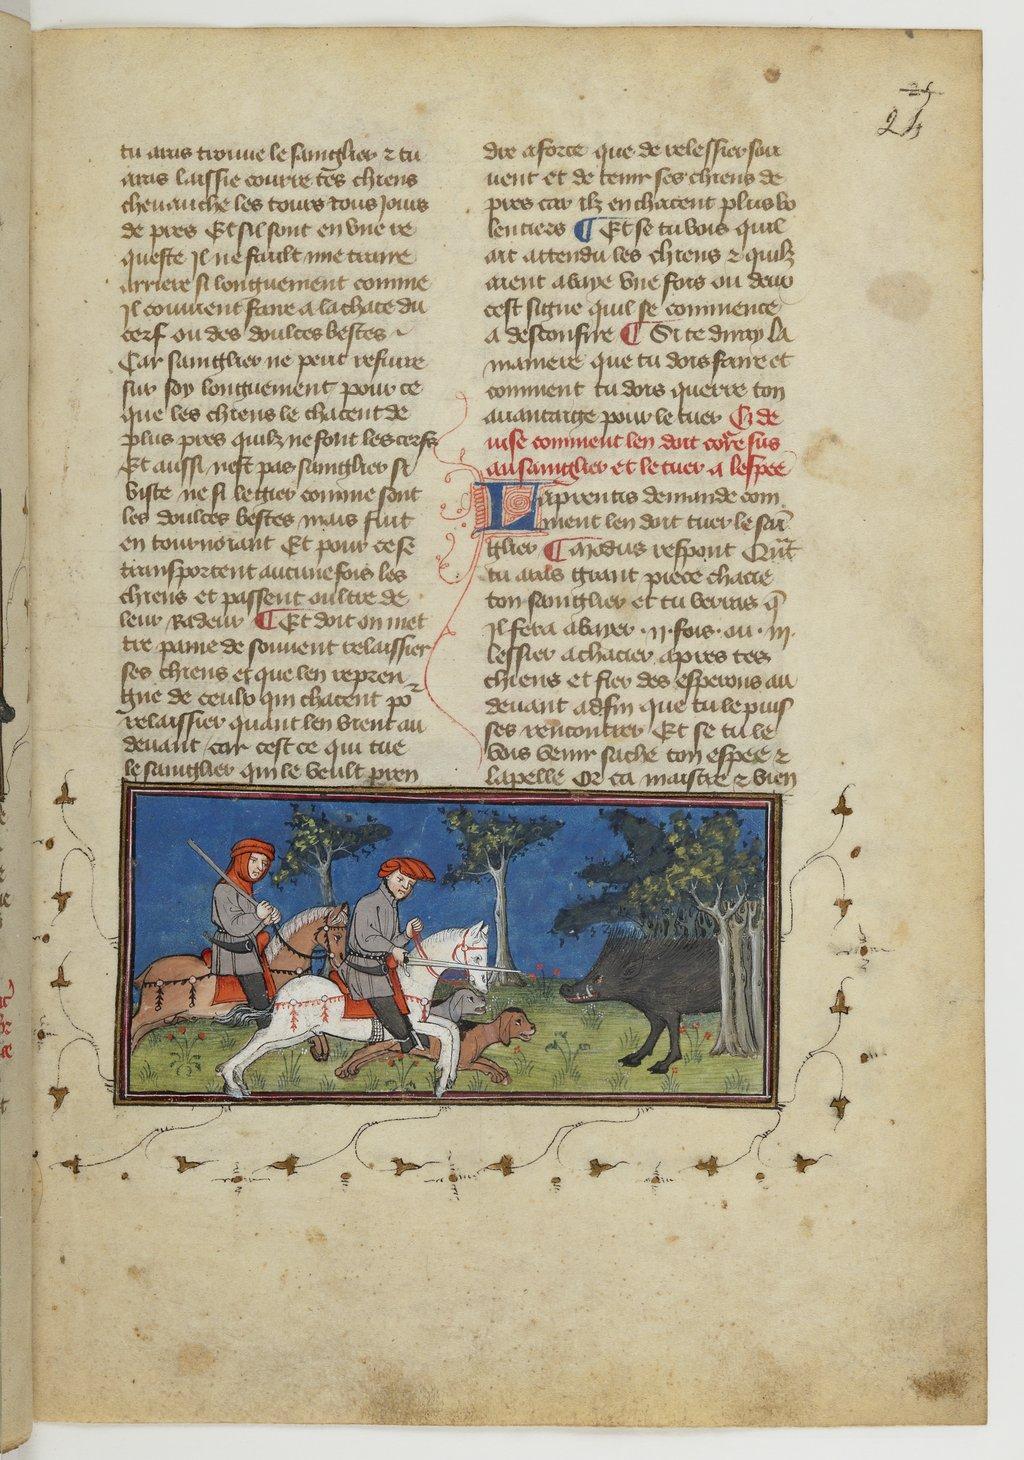 25
24
tu auras trouue le sainglier ⁊ tu
auras laissie courre tes chiens
cheuauche les tours tous jours
de pres Et sil sont en vne re
queste Il ne fault mie traire
arriere si longuement comme
Il conuient faire a la chace du
cerf ou des doulces bestes
Car sainglier ne peut refuire
sur soy longuement pour ce
que les chiens le chacent de
plus pres quilz ne font les cerfs
Et aussi nest pas sainglier si
viste ne si legier comme sont
les doulces bestes mais fuit
en tournoiant Et pour ce se
transportent aucune fois les
chiens et passent oultre de
leur radeur ¶ Et doit on met
tre paine de souuent relaissier
ses chiens et que len repren
gne de ceulx qui chacent po⁲
relaissier quant len vient au
deuant car cest ce qui tue
le sainglier qui le veult pren
dre a force que de relessier sou
uent et de tenir ses chiens de
pres car ilz en chacent plus vo
lentiers ¶ Et se tu vois quil
ait attendu les chiens ⁊ quilz
aient abaye vne fois ou deux
cest signe quil se commence
a desconfire ¶ Si te diray la
maniere que tu dois faire et
comment tu dois querre ton
auantaige pour le tuer Ci de
uise comment len doit co⁲re sus
au sainglier et le tuer a lespee
Laprentis demande com
ment len doit tuer le sai̅
glier ¶ Modus respont Qua̅t
tu auras grant piece chacie
ton sanglier et tu verras q̅
Il fera abayer .ij. fois. ou .iij.
lessier a chacier apres tes
chiens et fier des esperons au
deuant adfin que tu le puis
ses rencontrer Et se tu le
vois venir sache ton espee ⁊
lapelle Or ca maistre ⁊ vien